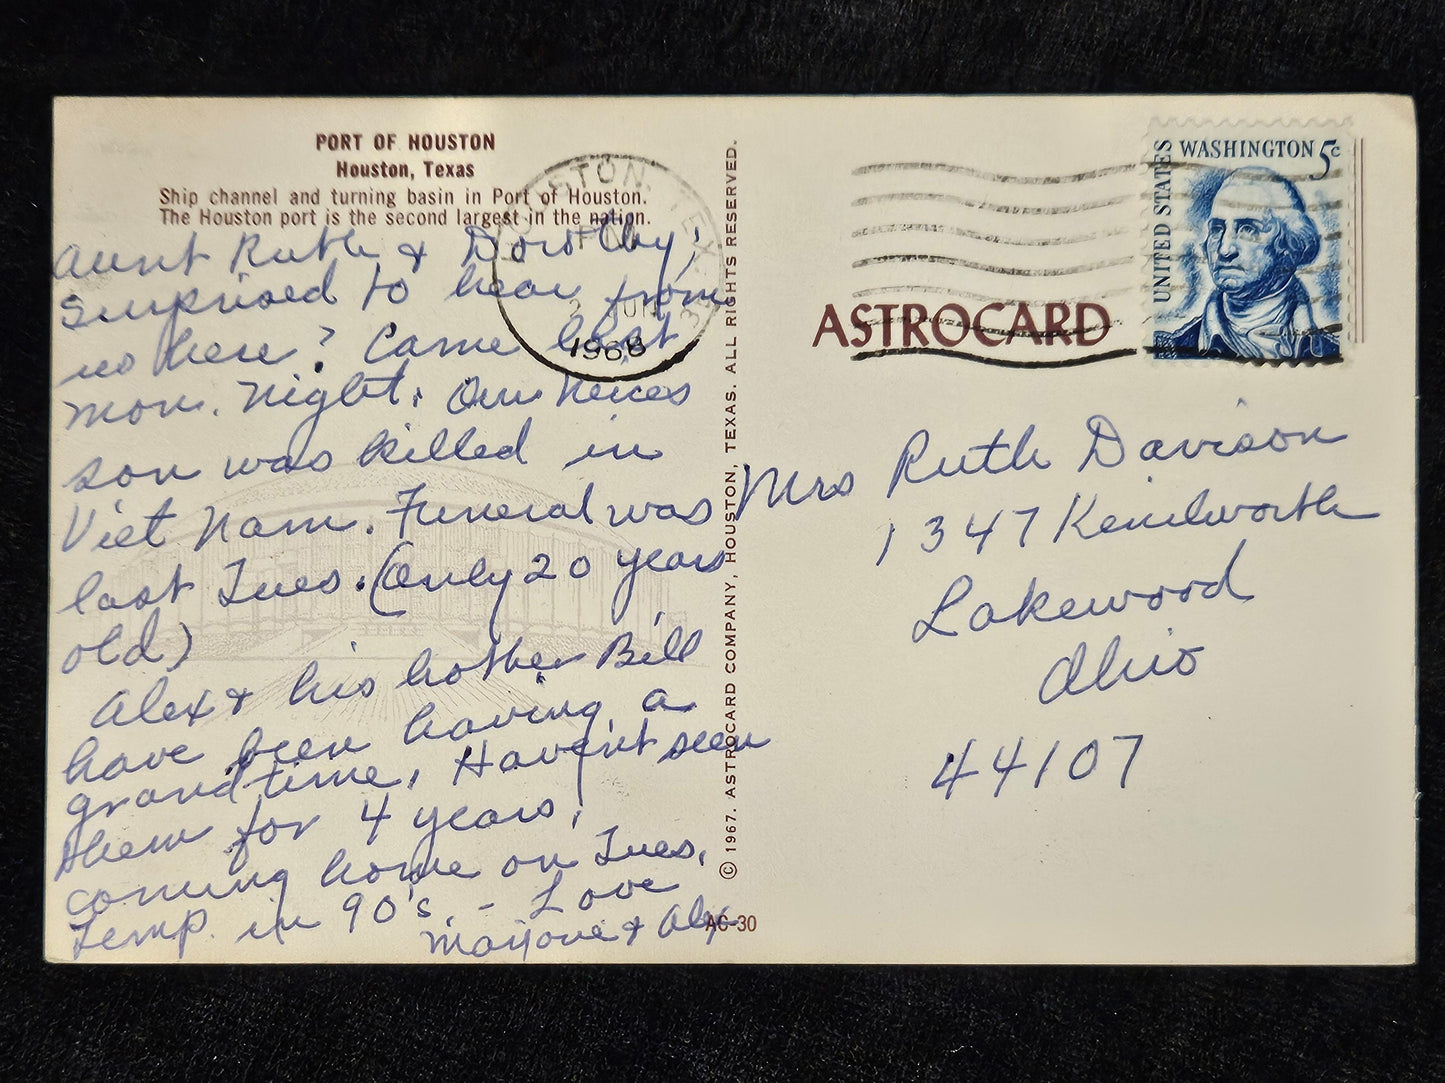 PORT OF HOUSTON
Houston, Texas
Ship channel and turning basin in Port of Houston.
The Houston port is the second largest in the nation.
Aunt Ruth & Dorothy;
Surprised to hear from
us here? Came last
Mon. Night. Our Neices
son was killed in
Viet Nam. Funeral was
last Tues. (Only 20 years
old)
Alex & his brother Bill
have been having a
grand time. Haven't seen
them for 4 years.
coming home on Tues.
Temp. in 90's. - Love
Marjorie & Alex
HOUSTON, TEX
PM
2 JUN
1968
© 1967. ASTROCARD COMPANY, HOUSTON, TEXAS. ALL RIGHTS RESERVED.
AC-30
ASTROCARD
UNITED STATES
WASHINGTON 5c
Mrs Ruth Davison
1347 Kenilworth
Lakewood
Ohio
44107